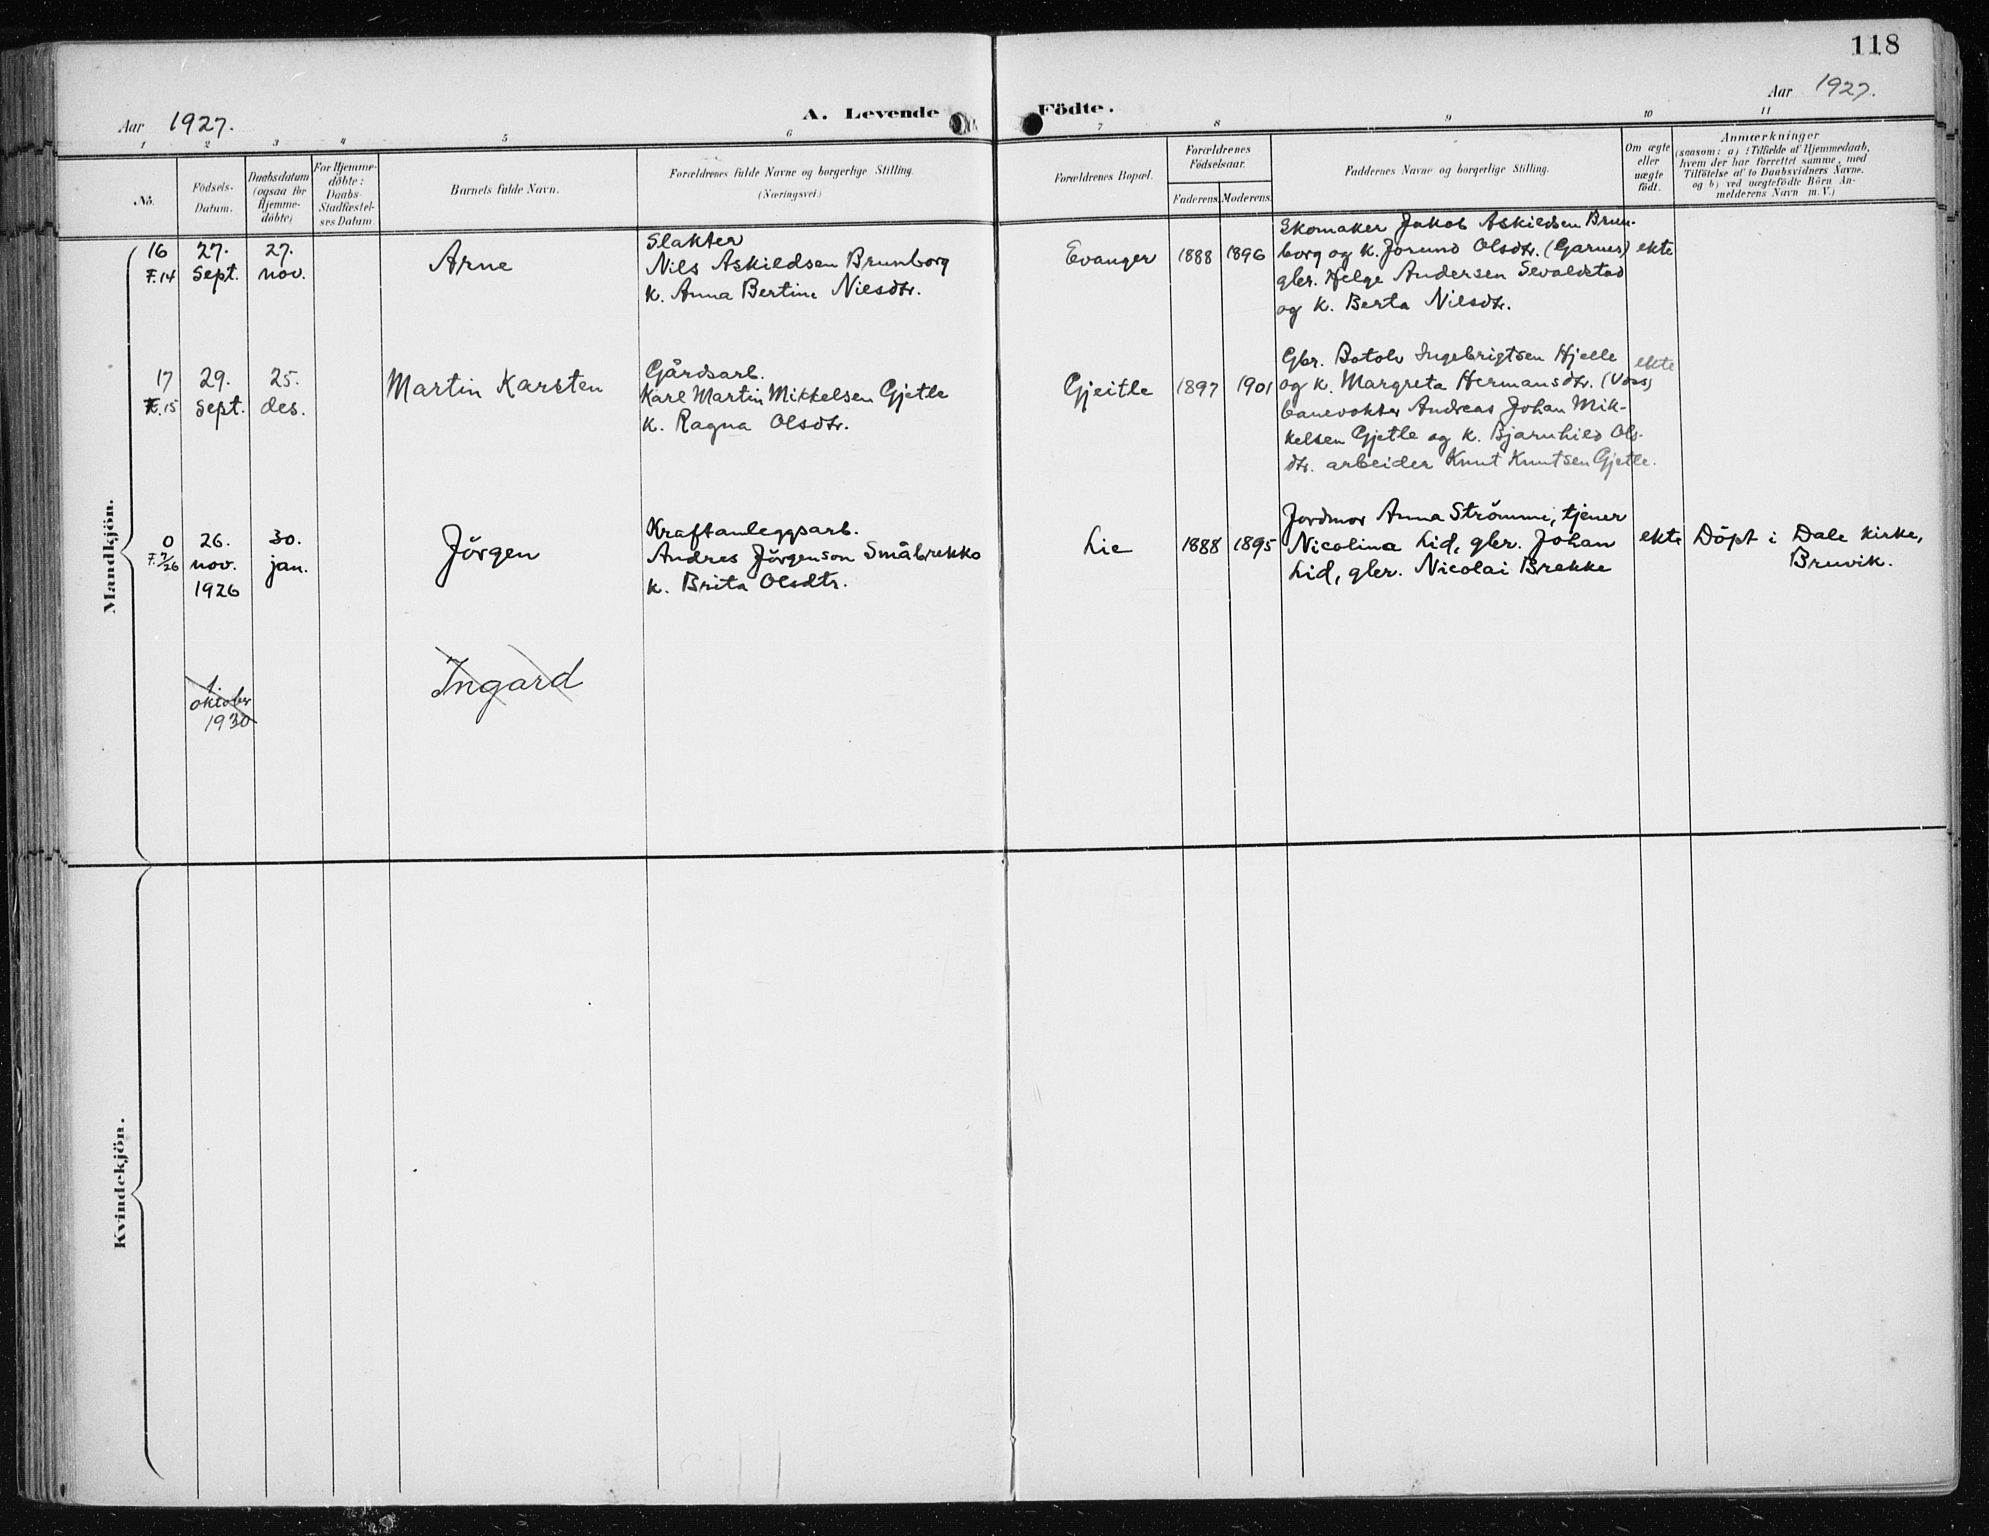 118
Aar 1927.
A. Levende Födte.
Aar 1927.
1 2 3 4 5 6 7 8 9 10 11
No.
Födsels-
Datum.
Daabsdatum
(ogsaa for
Hjemme-
döbte)
For Hjemme-
döbte:
Daabs-
Stadfæstel-
ses Datum.
Barnets fulde Navn.
Forældrenes fulde Navne og borgerlige Stilling.
(Næringsvei.)
Forældrenes Bopæl.
Forældrenes
Födselsaar.
Faderens. Moderens.
Faddernes Navne og borgerlige Stilling.
Om ægte
eller
uægte
födt.
Anmærkninger
(saasom: a) i Tilfælde af Hjemmedaab,
hvem der har forrettet samme, med
Tilföielse af to Daabsvidners Navne.
og b) ved uægtefödte Börn An-
melderens Navn m. V.)
Mandkjön.
16
F.14
27.
sept.
27.
nov.
Arne
Slakter
Nils Askildsen Brunborg
k. Anna Bertine Nilsdtr.
Evanger
1888
1896
Skomaker Jakob Askildsen Brun-
borg og k. Jorund Olsdtr. (Garnes)
gbr. Helge Andersen Sevaldstad
og k. Berta Nilsdtr.
ekte
17
F.15
29.
sept.
25.
des.
Martin Karsten
Gårdsarb.
Karl Martin Mikkelsen Gjetle
k. Ragna Olsdtr.
Gjeitle
1897
1901
Gbr. Botolv Ingebrigtsen Hjelle
og k. Margreta Hermansdtr. (Voss)
banevokter Andreas Johan Mik-
kelsen Gjetle og k. Bjarnhild Ols-
dtr. arbeider Knut Knutsen Gjetle.
ekte
0
F. 7/26
26.
nov.
1926
30.
jan.
Jörgen
Kraftanleggsarb.
Andres Jörgenson Småbrekko
k. Brita Olsdtr.
Lie
1888
1895
Jordmor Anna Strömme, tjener
Nicolina Lid, gbr. Johan
Lid, gbr. Nicolai Brekke
ekte
Döpt i Dale kirke,
Bruvik.
1.
oktober
1930
Ingard
Kvindekjön.